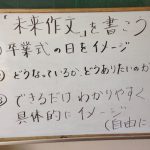 『未来作文』を書こう
① 卒業式の日をイメージ
② どうなっているか、どうありたいのか
③ できるだけわかりやすく、
具体的にイメージ
(自由に)